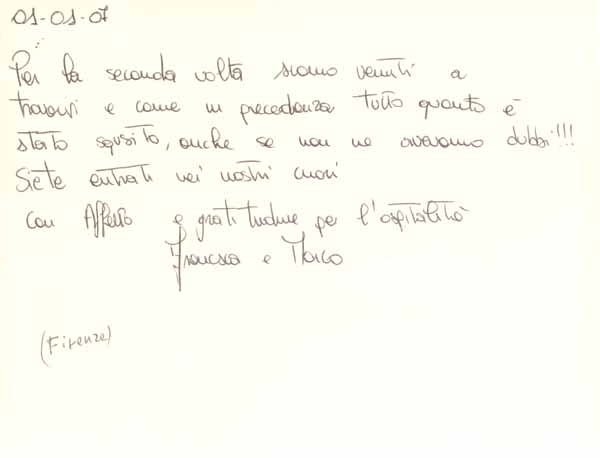 01-01-07
Per la seconda volta siamo venuti a
trovarvi e come in precedenza tutto quanto è
stato squisito, anche se non ne avevamo dubbi!!!
Siete entrati nei nostri cuori
con Affetto e gratitudine per l'ospitalità
Francesca e Marco
(Firenze)